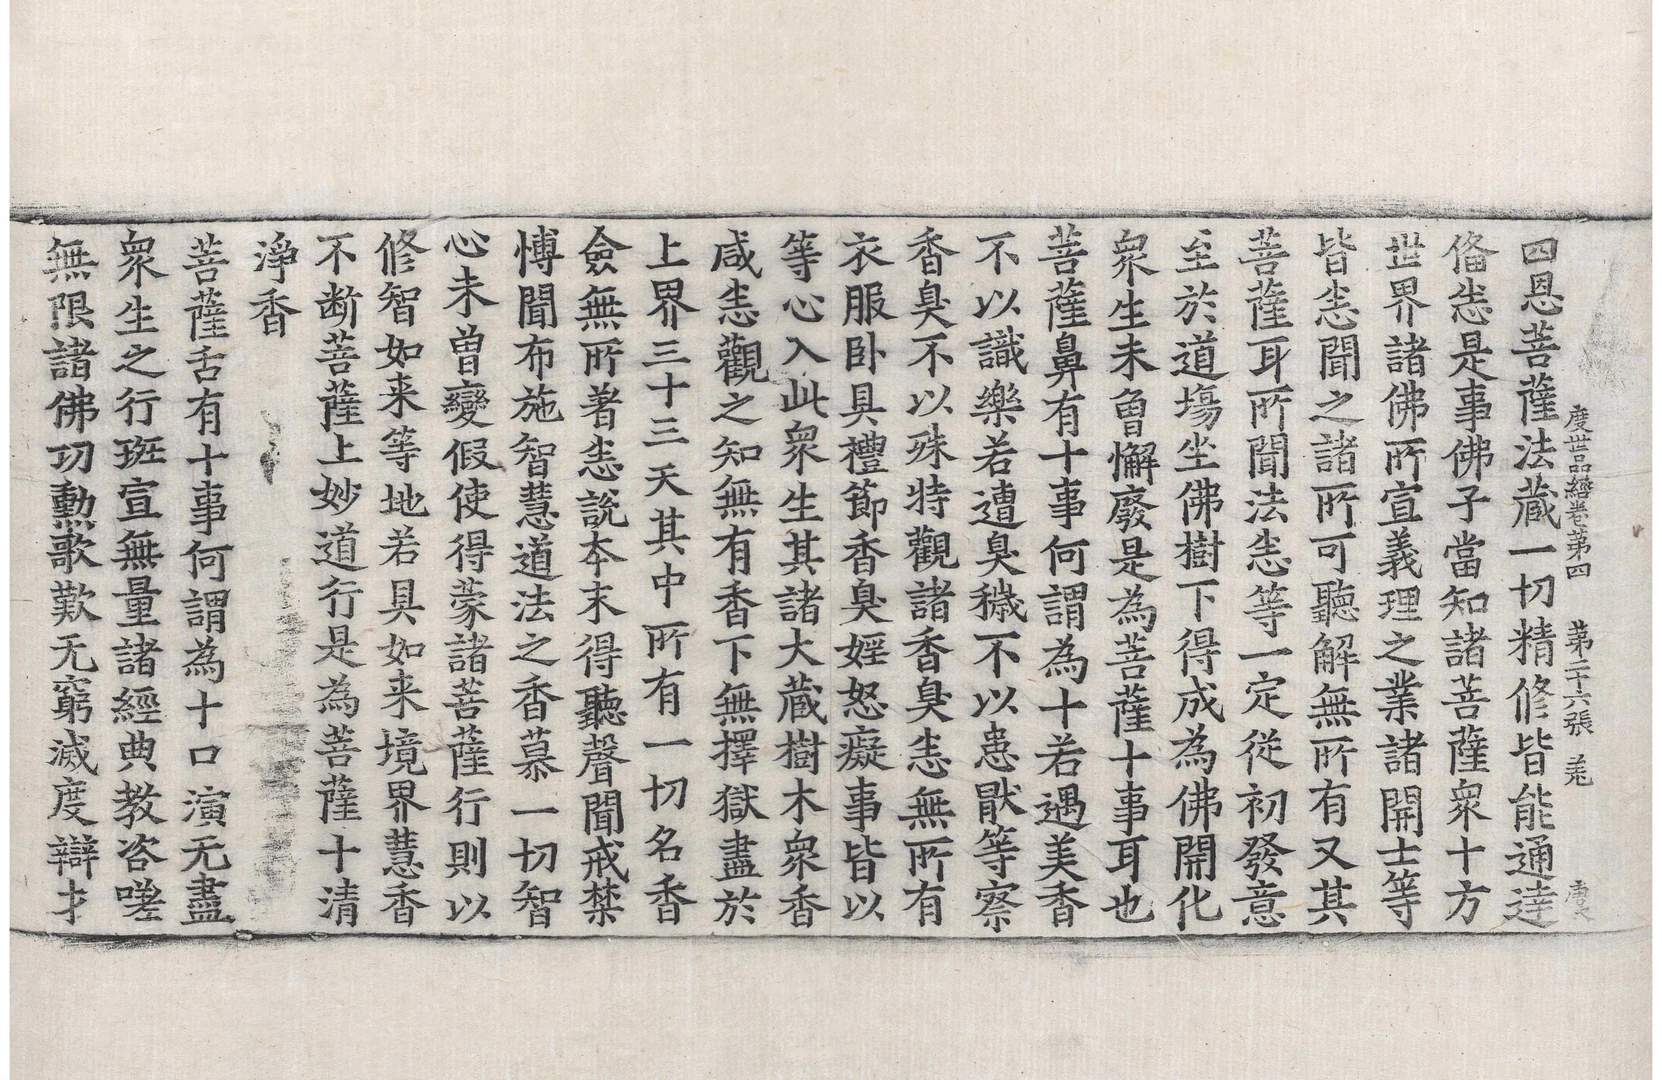 度世品經卷第四　第二十六張　羌
四恩菩薩法藏一切精修皆能通達
俻恣是事佛子當知諸菩薩衆十方
世界諸佛所宣義理之業諸開士等
皆恣聞之諸所可聽解無所有又其
菩薩耳所聞法恣等一定從初發意
至於道場坐佛樹下得成為佛開化
衆生未曾懈廢是為菩薩十事耳也
菩薩鼻有十事何謂為十若遇美香
不以識樂若遭臭穢不以患猒等察
香臭不以殊特觀諸香臭恣無所有
衣服卧具禮節香臭婬怒癡事皆以
等心入此衆生其諸大藏樹木衆香
咸恣觀之知無有香下無擇獄盡於
上界三十三天其中所有一切名香
僉無所著恣說本末得聽聲聞戒禁
愽聞布施智慧道法之香慕一切智
心未曽變假使得蒙諸菩薩行則以
修智如来等地若具如来境界慧香
不断菩薩上妙道行是為菩薩十清
淨香
菩薩舌有十事何謂為十口演无盡
衆生之行班宣無量諸經典教咨嗟
無限諸佛功勳歌歎无窮滅度辯才